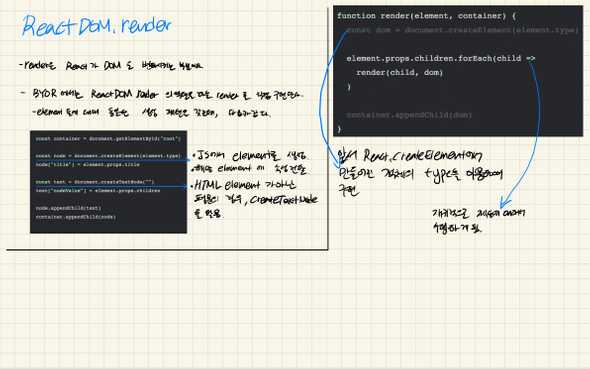 ReactDOM.render
- render는 React가 DOM 을
- BYOR 에서는 ReactDOM.render 의 render 를 직접 구현한다.
- element 등에 대해 생성
const container = document.getElementById("root")
const node = document.createElement(element.type)
node["title"] = element.props.title
const text = document.createTextNode("")
text["nodeValue"] = element.props.children
node.appendChild(text)
container.appendChild(node)
• JS에서 element를 생성.
• 해당 element 에 속성 전달
• HTML element 가 아닌
경우, createTextNode
를 활용
function render(element, container) {
const dom = document.createElement(element.type)
element.props.children.forEach(child =>
render(child, dom)
)
container.appendChild(dom)
}
앞서 React.createElement에서
만들어진 객체의 type을 이용하여
구현
재귀적으로
수행하게 됨.